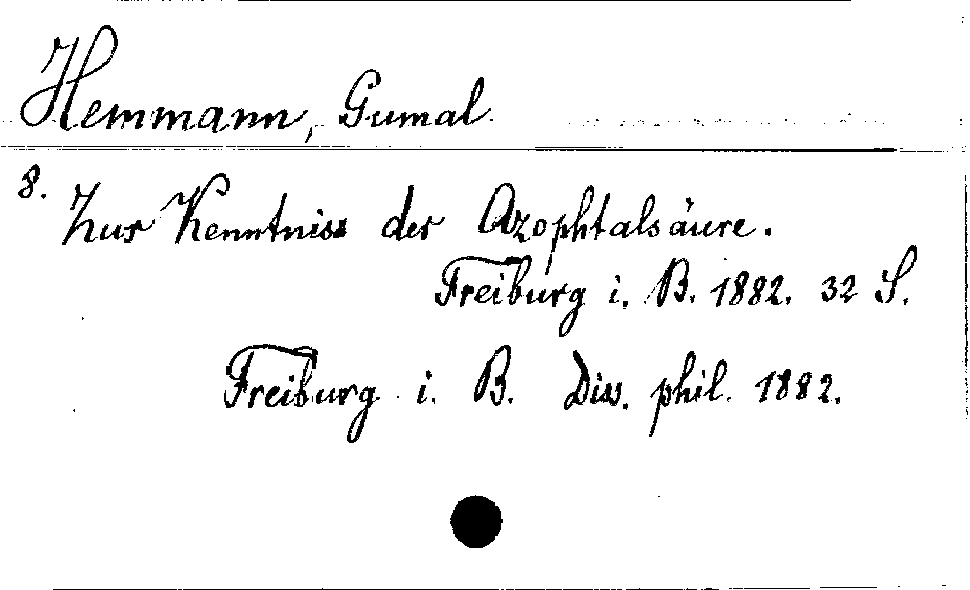 Hemmann, Gumal
8. Zur Kenntniss der Azophtalsäure.
Freiburg i. B. 1882. 32 S.
Freiburg i. B. Diss. phil. 1882.